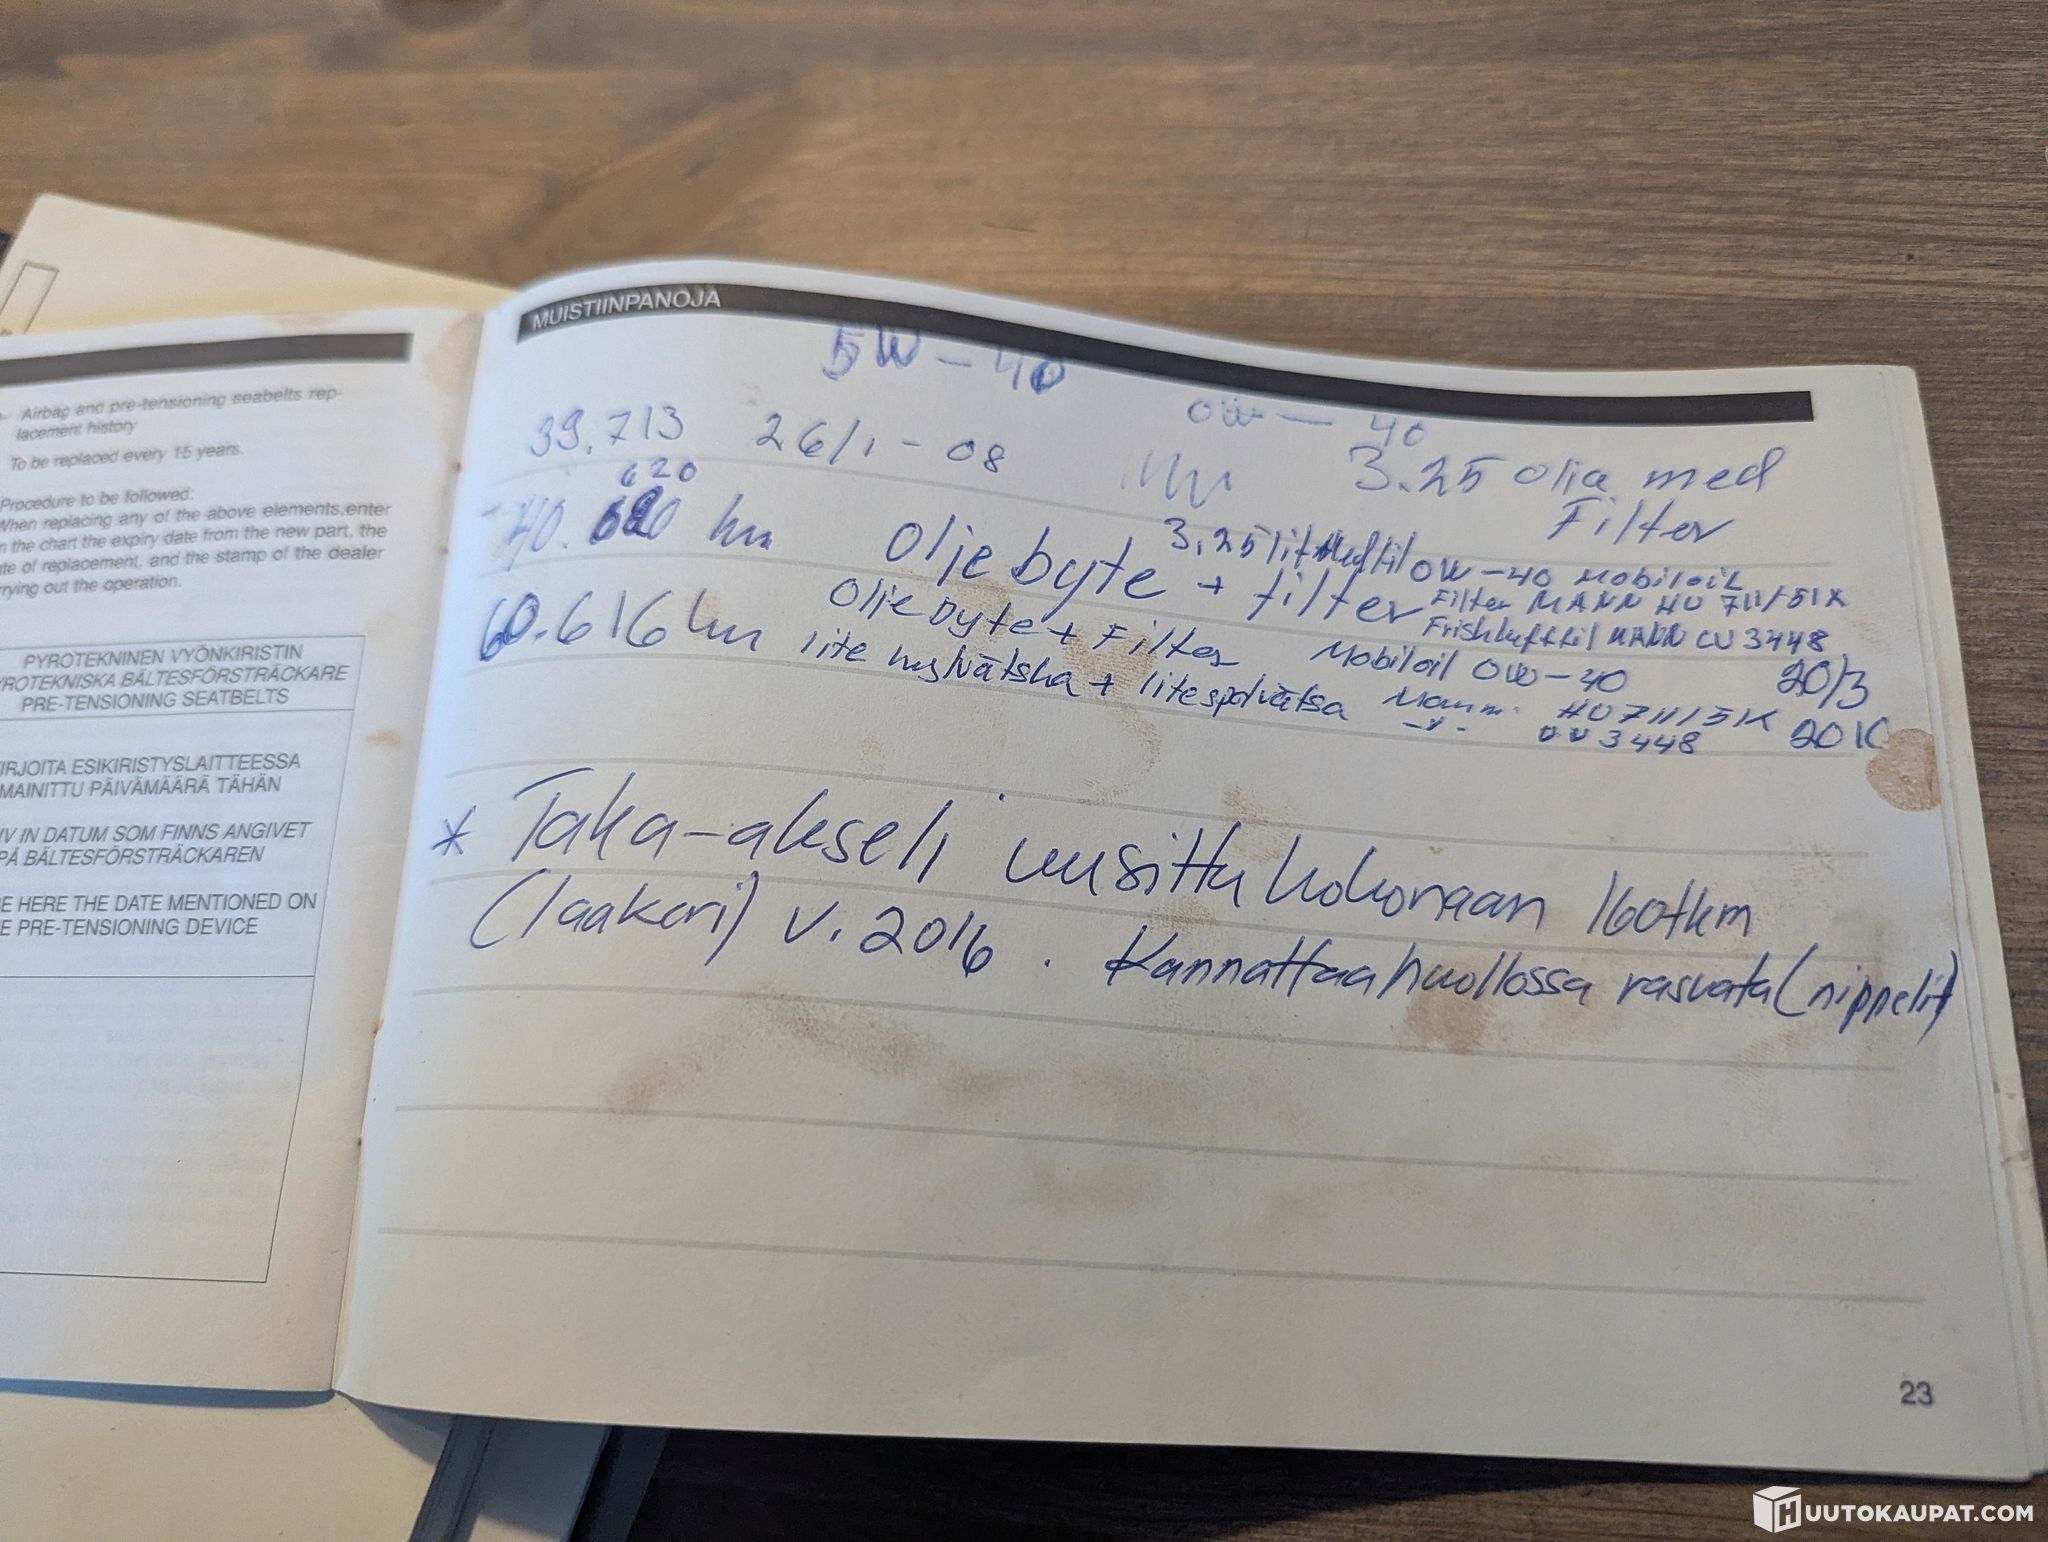 Airbag and pre-tensioning seabelts rep-
lacement history
To be replaced every 15 years.
Procedure to be followed:
When replacing any of the above elements, enter
in the chart the expiry date from the new part, the
of replacement, and the stamp of the dealer
out the operation.
PYROTEKNINEN VYÖNKIRISTIN
PYROTEKNISKA BÄLTESFÖRSTRÄCKARE
PRE-TENSIONING SEATBELTS
ESIKIRISTYSLAITTEESSA
MAINITTU PÄIVÄMÄÄRÄ TÄHÄN
IN DATUM SOM FINNS ANGIVET
PÅ BÄLTESFÖRSTRÄCKAREN
HERE THE DATE MENTIONED ON
PRE-TENSIONING DEVICE
MUISTIINPANOJA
5W-40
0W-40
39.713 26/1-08 3.25 olja med
Filter
620
40. km Oljebyte + filter
3,25 lit 0W-40 Mobiloil
Filter MANN HU 711/51X
MANN CU 3448
60.616 km Oljebyte + Filter Mobiloil 0W-40 20/3
lite + lite HU 711/51X 2010
CU 3448
* Taka-akseli uusittu kokonaan 160tkm
(laakeri) v. 2016. Kannattaa huollossa rasvata (nippelit)
23
HUUTOKAUPAT.COM